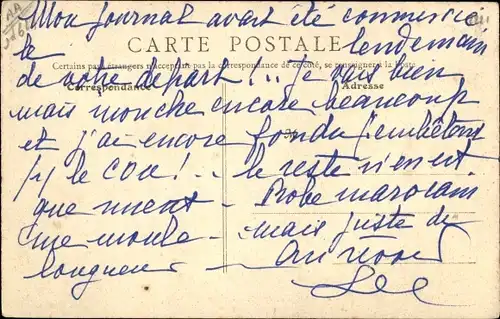 Mon journal avait été commencé
le lendemain
CARTE POSTALE
de votre départ!.. Je vais bien
Certains pays étrangers n'acceptant pas la correspondance de ce côté, se renseigner à la Poste
Correspondance
Adresse
mais mouche encore beaucoup
et j'ai encore
le cou! .. le reste n'en est
que
Robe marocain
me moule - mais juste de
longueur - Au revoir